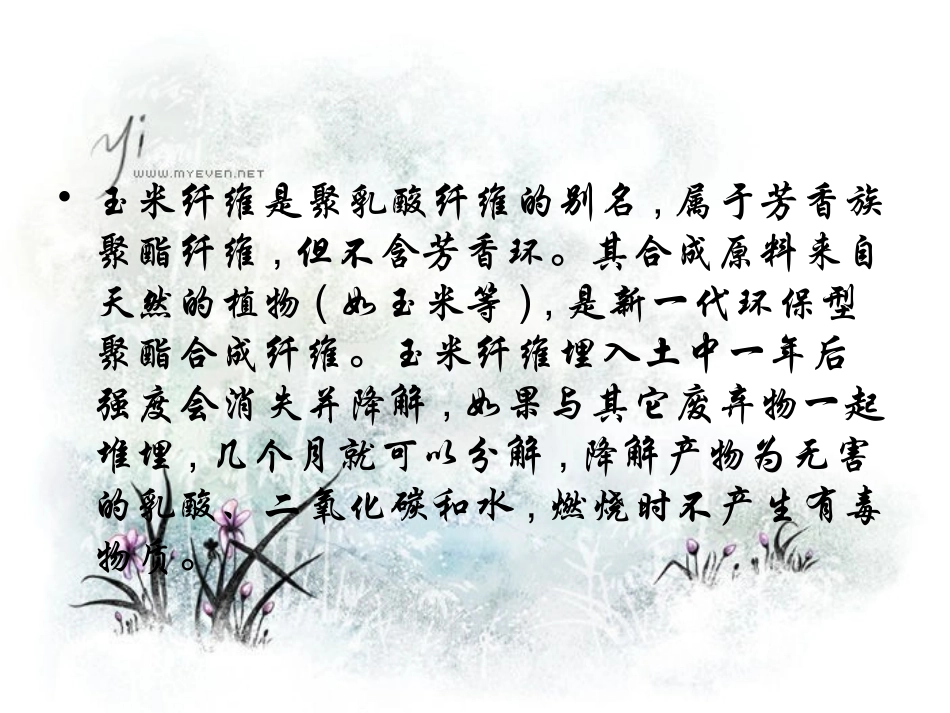 yi
WWW.MYEVEN.NET
• 玉米纤维是聚乳酸纤维的别名,属于芳香族
聚酯纤维,但不含芳香环。其合成原料来自
天然的植物(如玉米等),是新一代环保型
聚酯合成纤维。玉米纤维埋入土中一年后
强度会消失并降解,如果与其它废弃物一起
堆埋,几个月就可以分解,降解产物为无害
的乳酸、二氧化碳和水,燃烧时不产生有毒
物质。